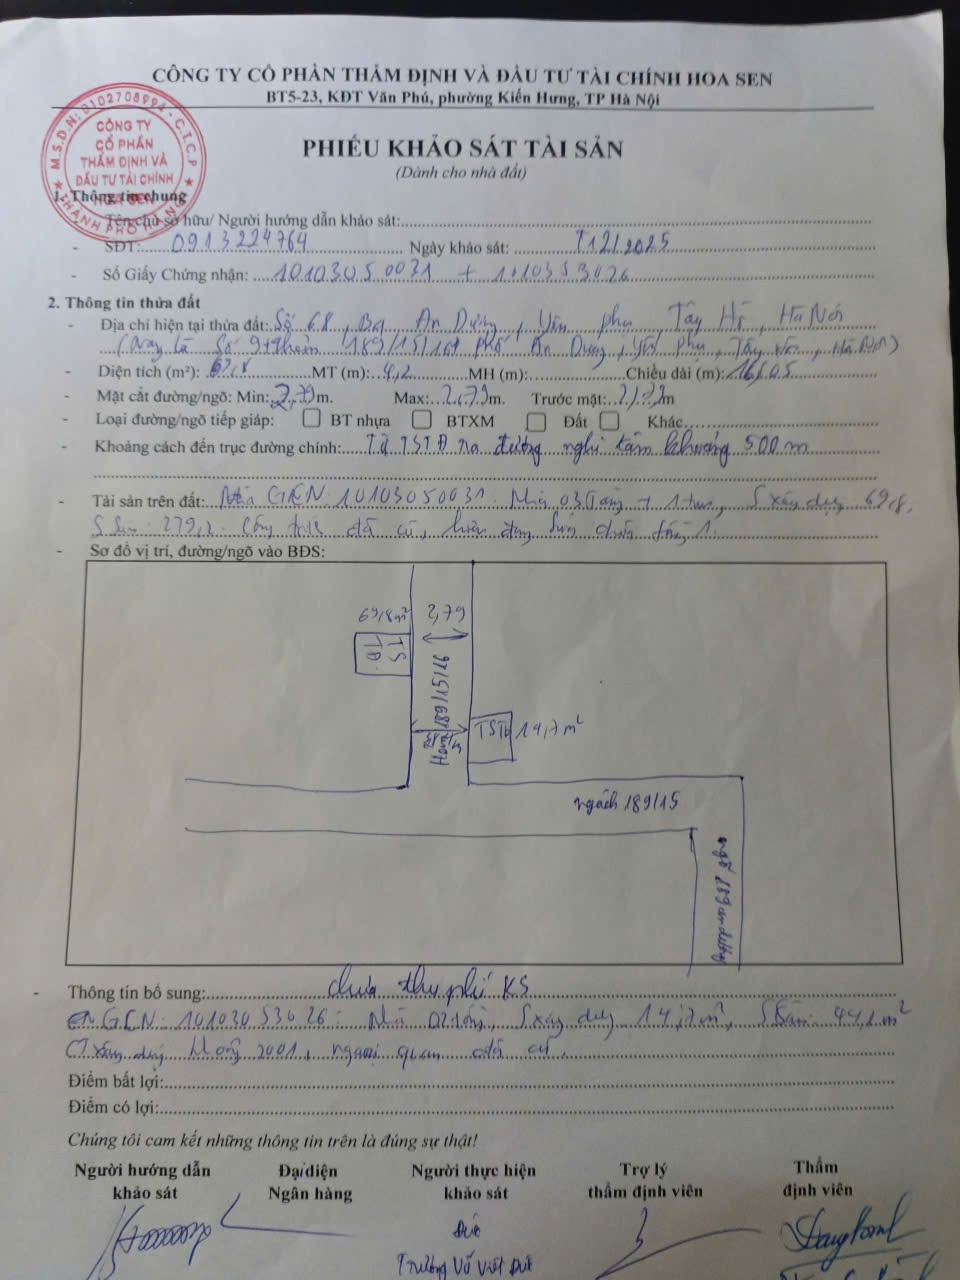 CÔNG TY CỔ PHẦN THẨM ĐỊNH VÀ ĐẦU TƯ TÀI CHÍNH HOA SEN
BT5-23, KĐT Văn Phú, phường Kiến Hưng, TP Hà Nội
M.S.D.N: 0102708994 - C.T.C.P
CÔNG TY
CỔ PHẦN
THẨM ĐỊNH VÀ
ĐẦU TƯ TÀI CHÍNH
HOA SEN
THÀNH PHỐ HÀ NỘI
PHIẾU KHẢO SÁT TÀI SẢN
(Dành cho nhà đất)
1. Thông tin chung
Tên chủ sở hữu/ Người hướng dẫn khảo sát:
- SĐT: 0913224764 Ngày khảo sát: T12/2025
- Số Giấy Chứng nhận: 10103050031 +
2. Thông tin thửa đất
- Địa chỉ hiện tại thửa đất: Số 68, An Dương, Yên phụ, Tây Hồ, Hà Nội
(Nay là số 189/15/ phố An Dương, Yên Phụ, Tây Hồ, Hà Nội)
- Diện tích (m²): MT (m): 4,2 MH (m): Chiều dài (m): 16,505
- Mặt cắt đường/ngõ: Min: 2,79 m. Max: 2,79 m. Trước mặt: m
- Loại đường/ngõ tiếp giáp: BT nhựa BTXM Đất Khác
- Khoảng cách đến trục đường chính: Từ TSTĐ ra đường nghi tàm khoảng 500 m
- Tài sản trên đất: GCN 10103050031. Nhà 03 tầng + 1 tum, S xây dựng 69,8,
S sàn: 279,2. Công trình đã cũ, hiện đang tầng 1.
- Sơ đồ vị trí, đường/ngõ vào BĐS:
69,8m² 2,79
TS
TĐ
TSTĐ 14,7m²
ngách 189/15
ngõ 189 an dương
- Thông tin bổ sung: chưa thu phí KS
GCN: Nhà 02 tầng, S xây dựng 14,7m², S sàn: 44,1 m²
xây dựng 2001, ngoại quan đã cũ.
Điểm bất lợi:
Điểm có lợi:
Chúng tôi cam kết những thông tin trên là đúng sự thật!
Người hướng dẫn khảo sát
Đại diện Ngân hàng
Người thực hiện khảo sát
Trợ lý thẩm định viên
Thẩm định viên
Đức
Trương Võ Việt Đức